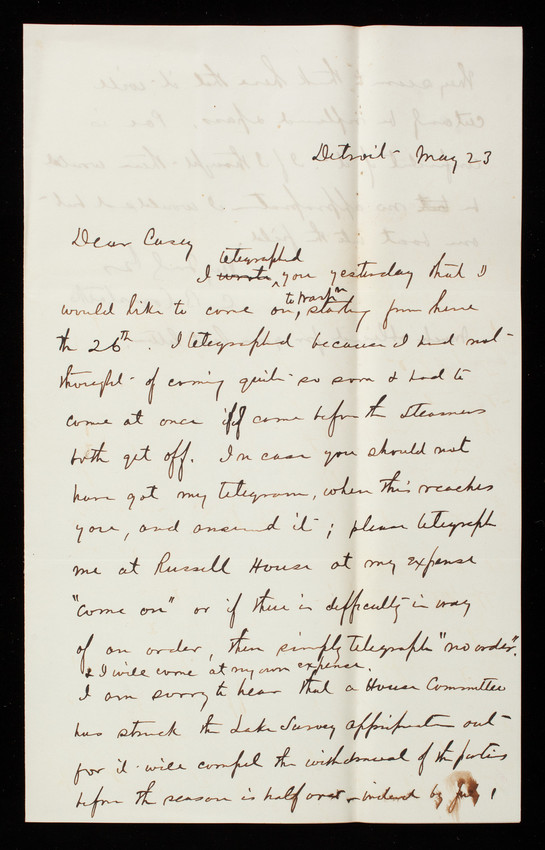 Detroit May 23
Dear Casey
telegraphed
I wrote you yesterday that I
to Washn
would like to come on, starting from here
the 26th. I telegraphed because I had not
thought of coming quite so soon & had to
come at once if I came before the steamers
both get off. In case you should not
have got my telegram, when this reaches
you, and answered it; please telegraph
me at Russell House at my expense
"Come on" or if there is difficulty in way
of an order, then simply telegraph "no order".
& I will come at my own expense.
I am sorry to hear that a House Committee
has struck the Lake Survey appropriation out
for it will compel the withdrawal of the parties
before the season is half over - indeed by July 1